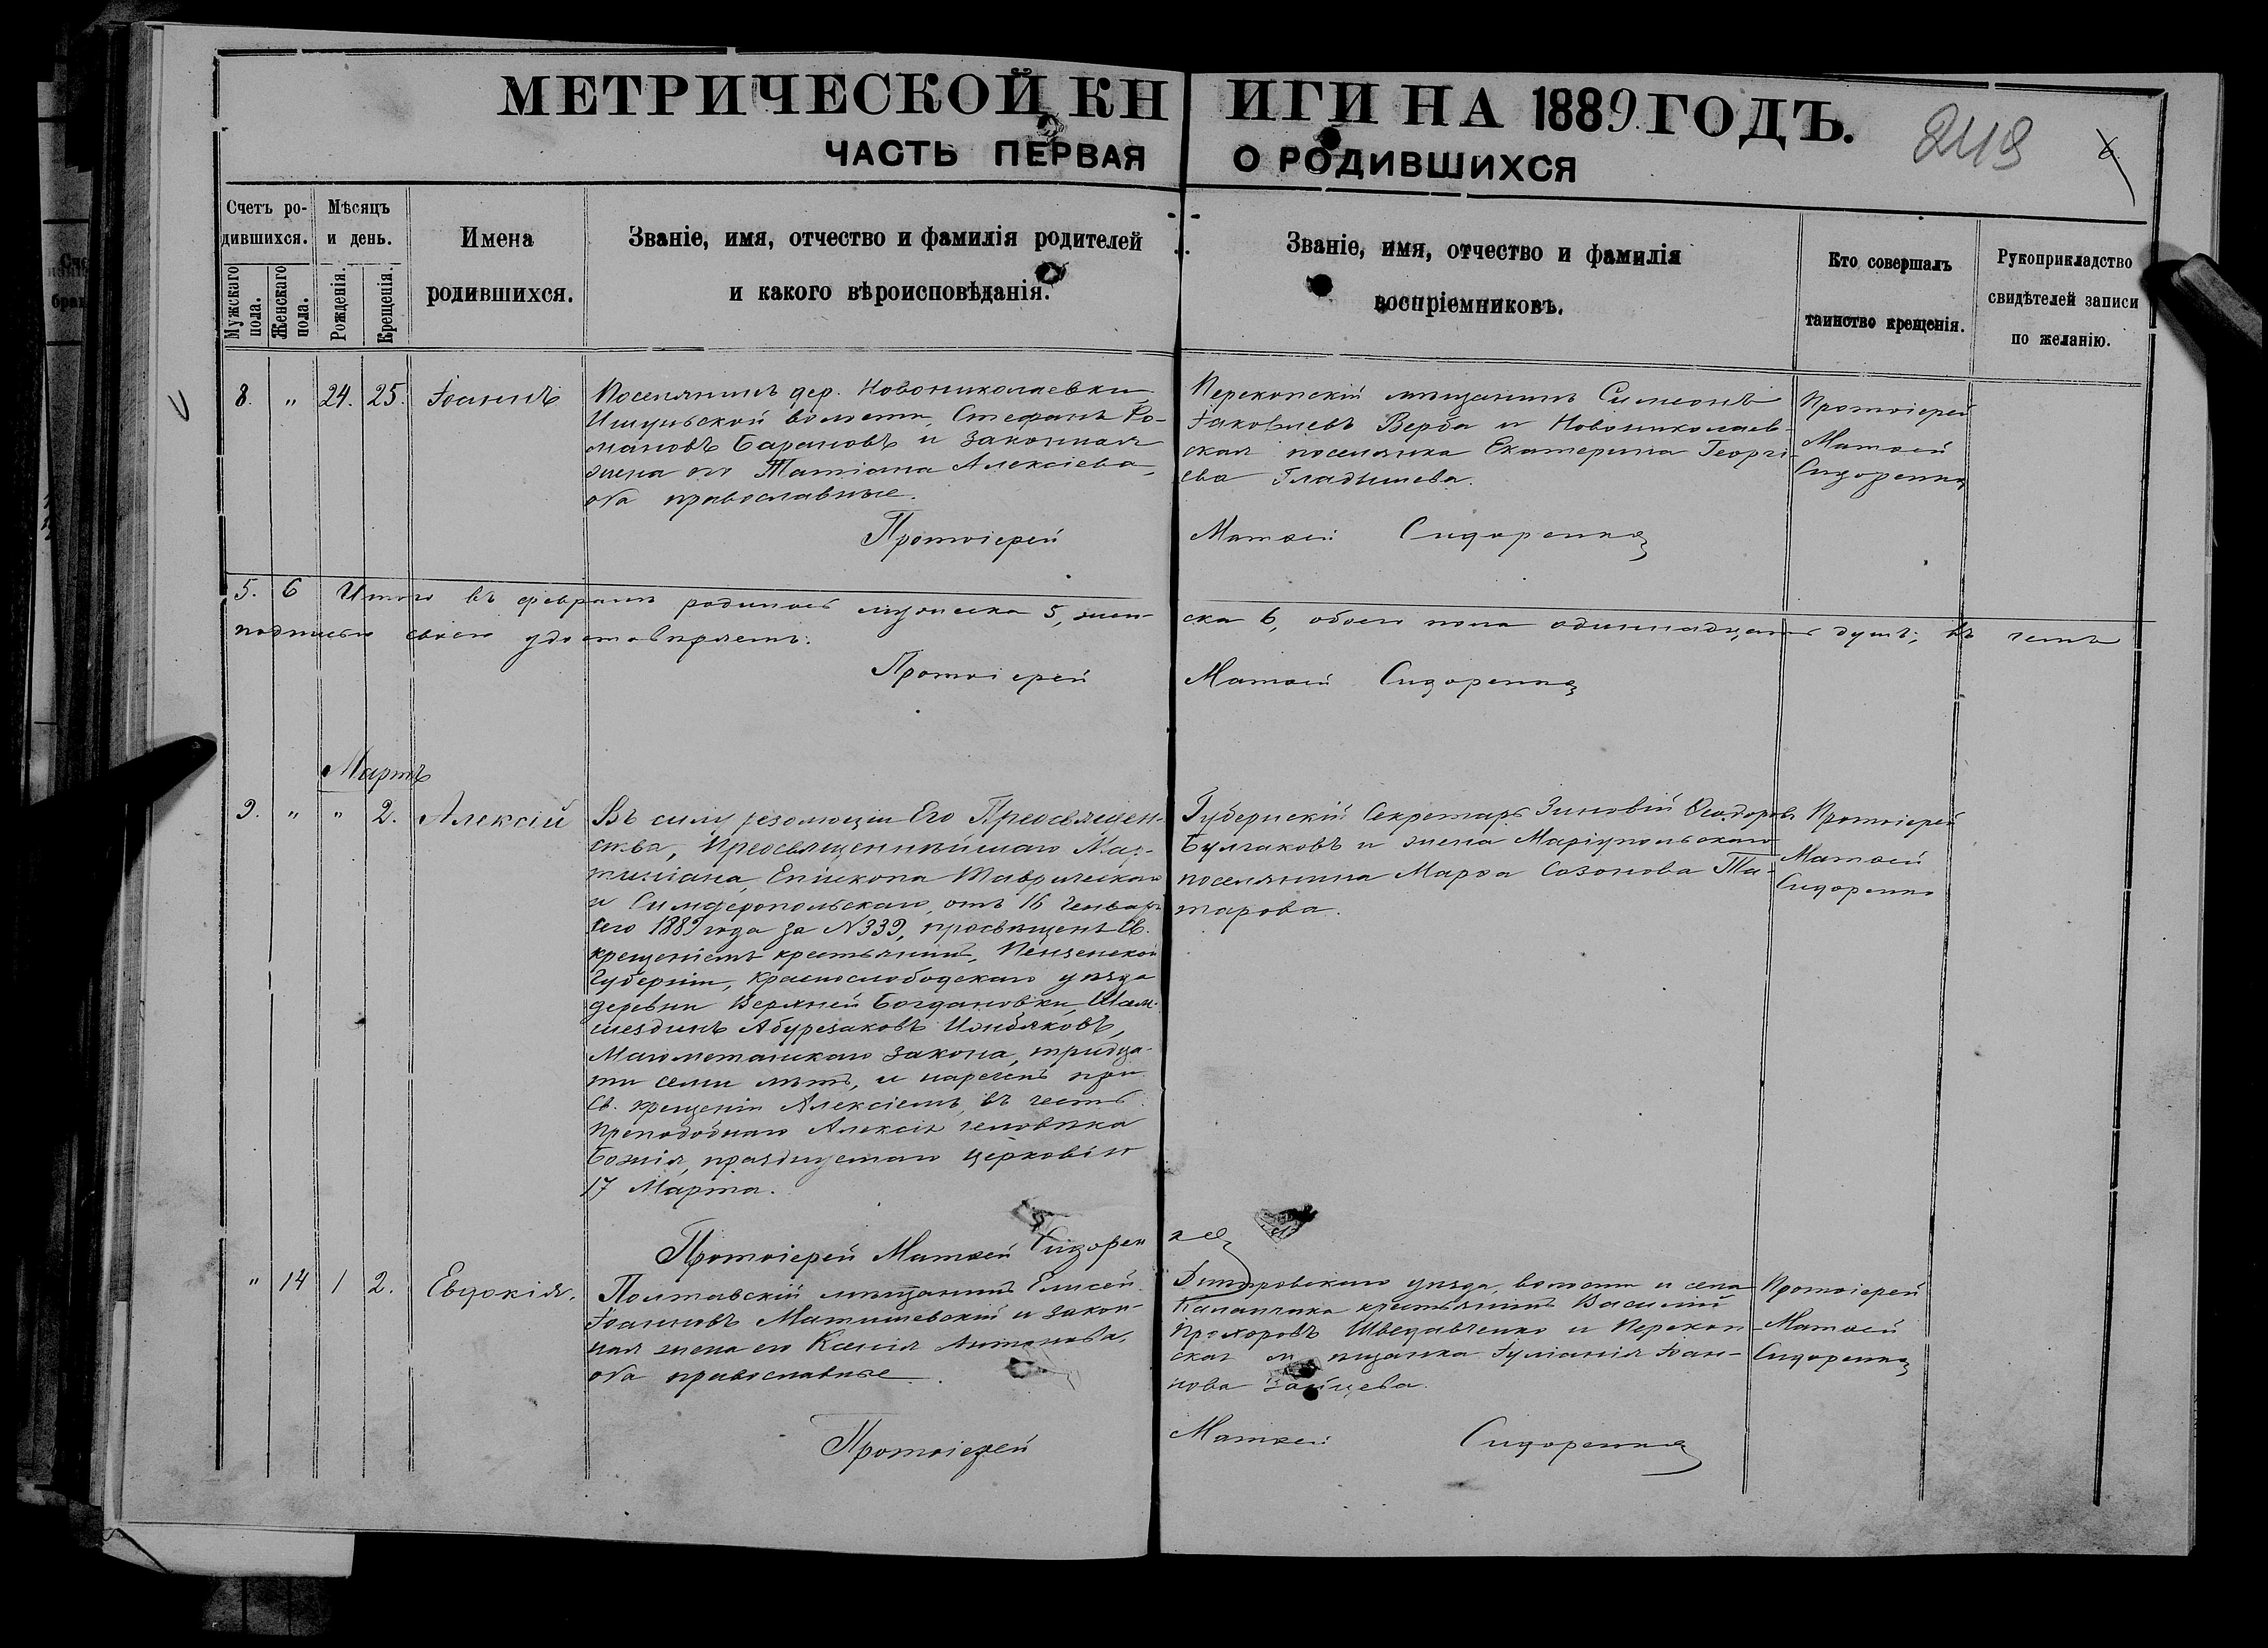 МЕТРИЧЕСКОЙ КНИГИ НА 1889 ГОДЪ.
ЧАСТЬ ПЕРВАЯ О РОДИВШИХСЯ
249
Счетъ родившихся.
Мужскаго пола.
Женскаго пола.
Мѣсяцъ и день.
Рожденія.
Крещенія.
Имена родившихся.
Званіе, имя, отчество и фамилія родителей
и какого вѣроисповѣданія.
Званіе, имя, отчество и фамилія
воспріемниковъ.
Кто совершалъ
таинство крещенія.
Рукоприкладство
свидѣтелей записи
по желанію.
8. " 24. 25. Іоаннъ
Поселянинъ дер. Новониколаевки,
Ишуньской волости, Стефанъ Ро-
мановъ Барановъ и законная
жена его Татіана Алексіева,
оба православные.
Перекопскій мѣщанинъ Симеонъ
Іаковлевъ Верба и Новониколаев-
ская поселянка Екатерина Георгі-
ева Гладышева.
Протоіерей
Матѳей
Сидоренко
Протоіерей Матѳей Сидоренко
5. 6 Итого въ февралѣ родилось мужеска 5, жен-ска 6, обоего пола одиннадцать душъ; въ чемъ
подписью своею удостовѣряемъ:
Протоіерей Матѳей Сидоренко
Мартъ
9. " " 2. Алексій
Въ силу резолюціи Его Преосвящен-
ства, Преосвященнѣйшаго Мар-
тиніана, Епископа Таврическаго
и Симферопольскаго, отъ 16 Генваря
сего 1889 года за N 339, просвѣщенъ Св.
крещеніемъ крестьянинъ, Пензенской
Губерніи, Краснослободскаго уѣзда
деревни Верхней Богдановки, Шам-
шездинъ Абурезаковъ
Магометанскаго закона, тридца-
ти семи лѣтъ, и нареченъ при
Св. крещеніи Алексіемъ, въ честь
Преподобнаго Алексія человѣка
Божія, празднуемаго церковію
17 Марта.
Губернскій Секретарь Зиновій Ѳеодоровъ
Булгаковъ и жена Маріупольскаго
поселянина Марѳа Созонова Та-
тарова.
Протоіерей
Матѳей
Сидоренко
Протоіерей Матѳей Сидоренко
" 14 1 2. Евдокія.
Полтавскій мѣщанинъ Елисей
Іоанновъ Матишевскій и закон-
ная жена его Ксенія Антонова,
оба православные.
Днѣпровскаго уѣзда, волости и села
Каланчака крестьянинъ Василій
Прохоровъ Шведавченко и Перекоп-
ская мѣщанка Іуліанія Іоан-
нова Зайцева.
Протоіерей
Матѳей
Сидоренко
Протоіерей Матѳей Сидоренко